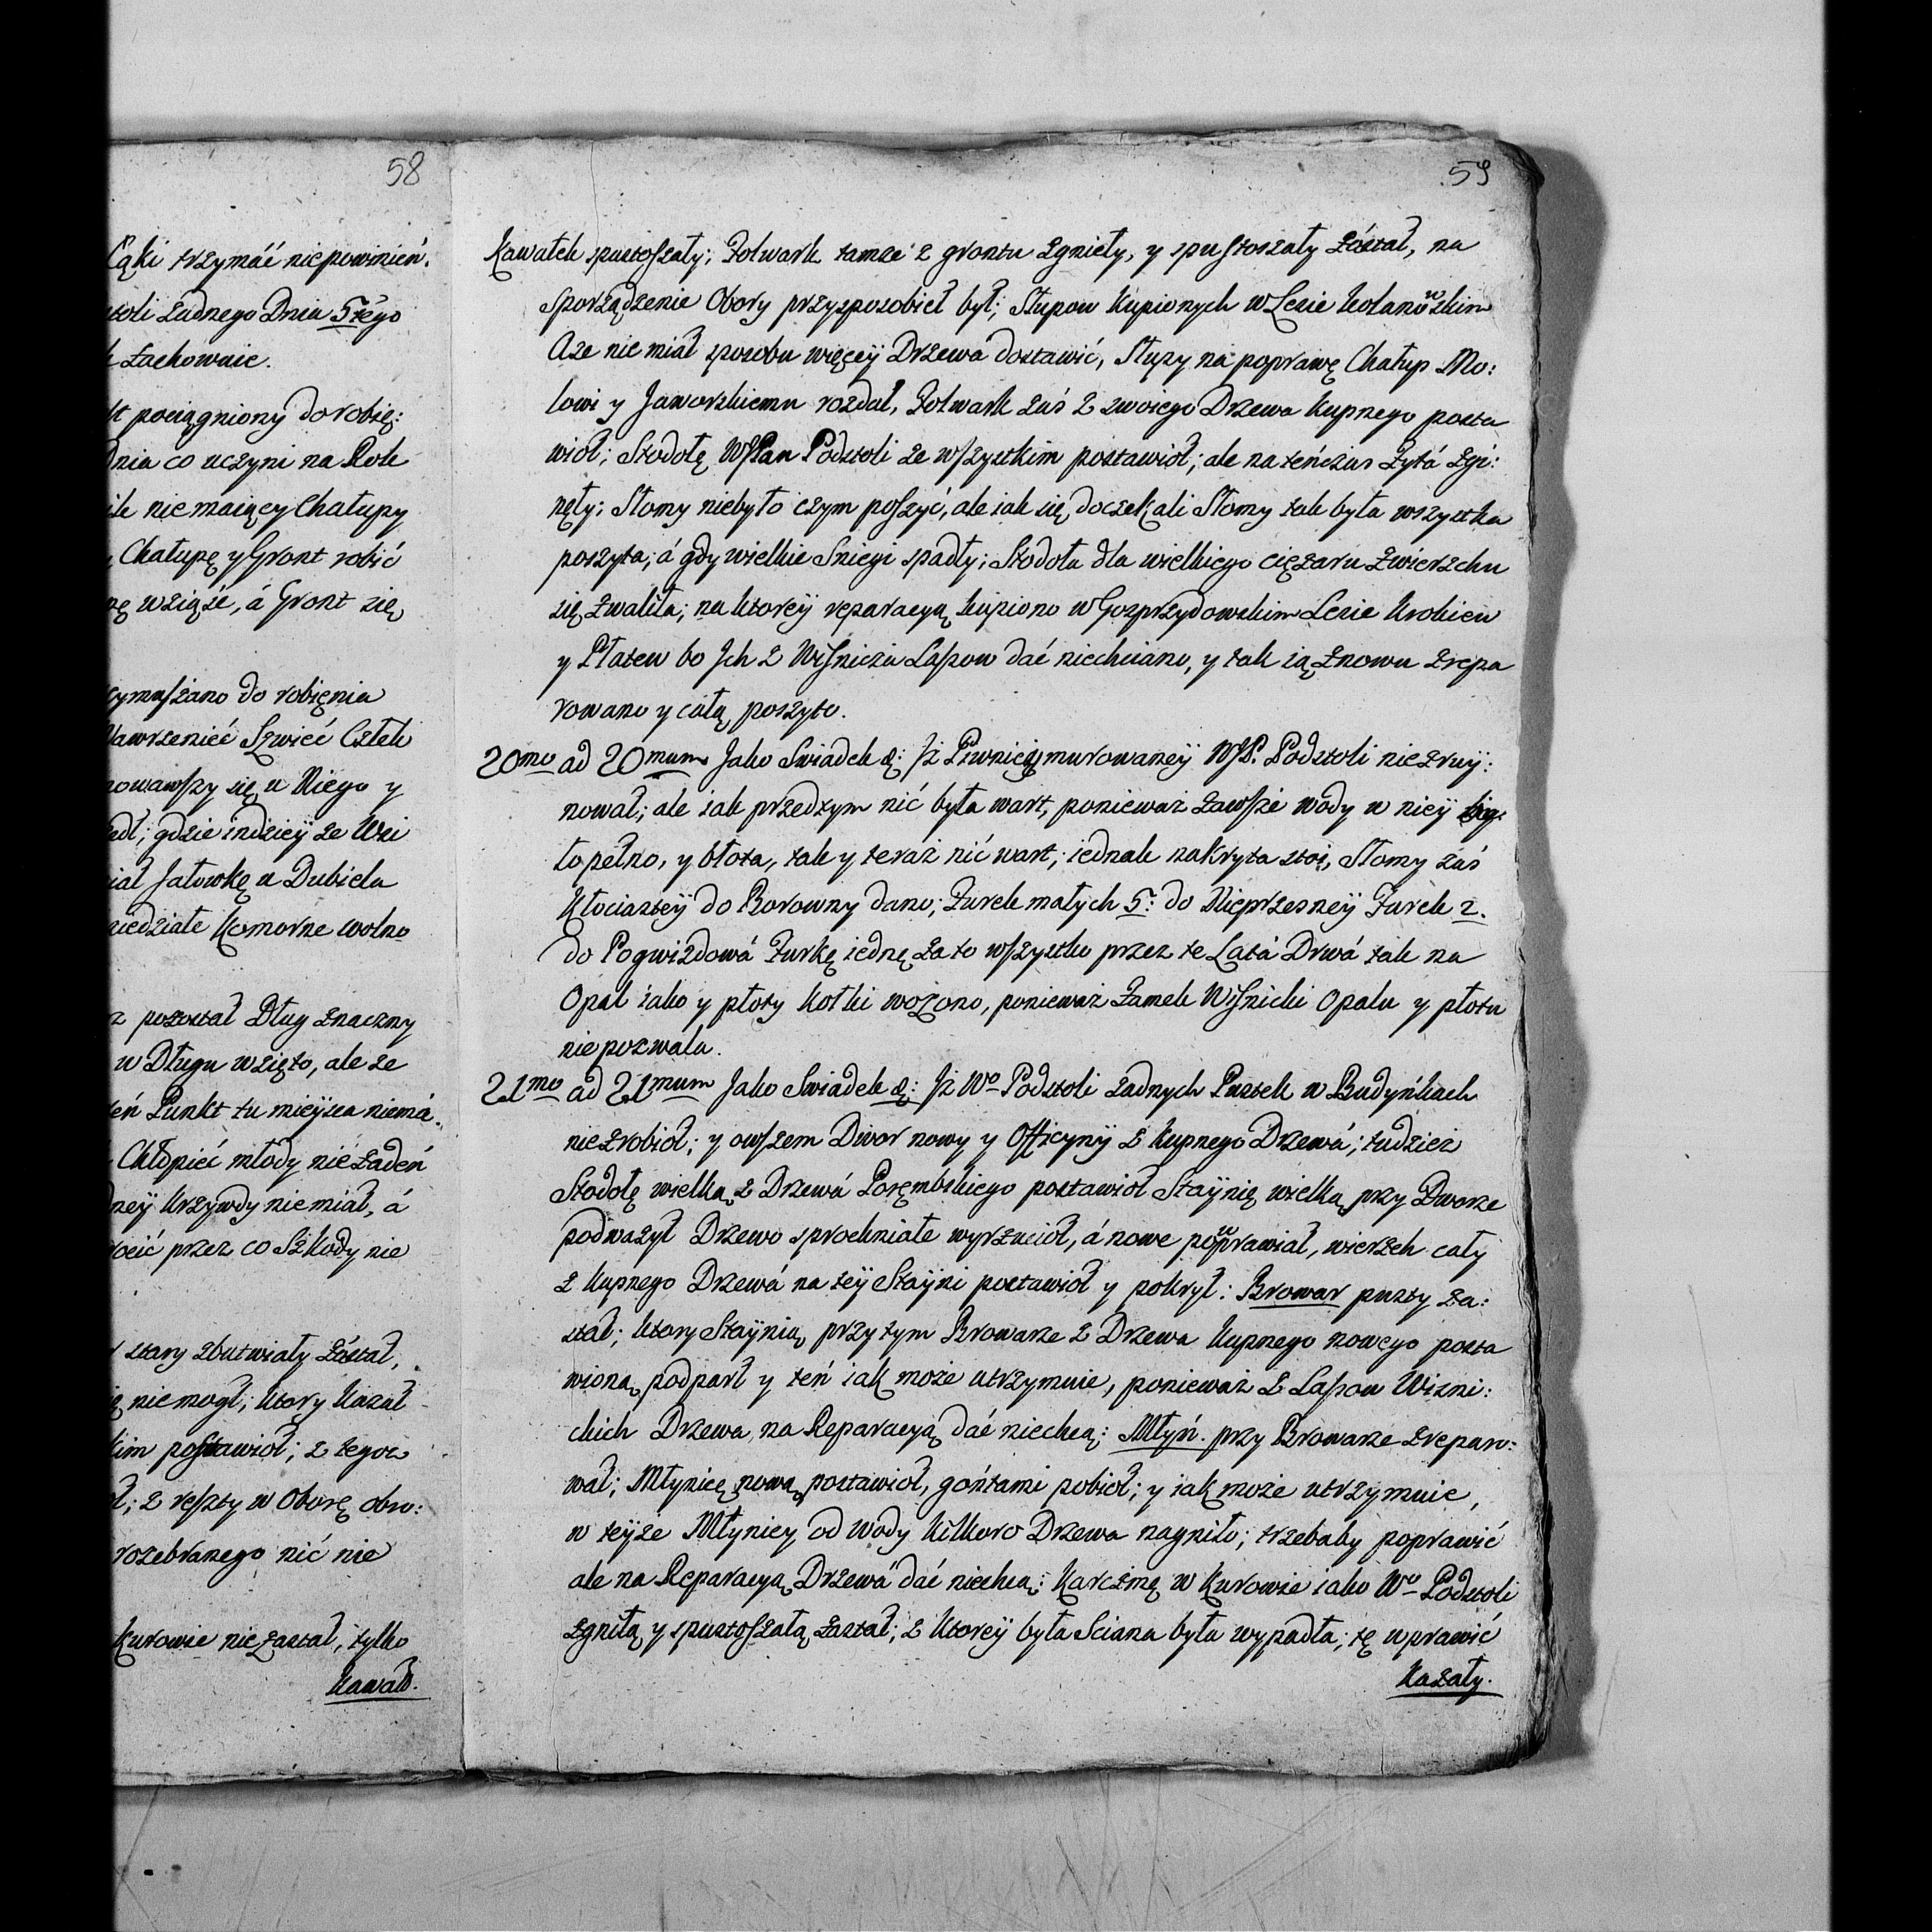 58
Łąki trzymáć niepowinień.
żadnego Dnia 5tego
zachowuie.
pociągniony do robię:
Dnia co uczyni na Rok
nie maiący Chałupy
Chałupę y Gront robić
wziąźć, á Gront się
do robięnia
Szwieć Człek
się u Niego y
gdzie indzieÿ ze Wsi
Jałowkę u Dubiela
Komorne wolno
pozostał Dług znaczny
w Długu wzięto, ale że
Punkt tu mieysca niemá.
Chłopieć młody nie żadeń
Krzywdy nie miał, á
przez co Szkody nie
stary zbutwiały zástał,
nie mogł; ktory kazał
postawioł; z tegoz
z reszty w Oborę obro:
rozebranego nić nie
Kurowie nie zastał, tylko
Kawał.
59
Kawałek spustoszały; Folwark tamże z grontu zgnieły, y spustoszały zástał, na
sporządzenie Obory przysposobieł był; Słupow kupionych w Lesie Kołanowskim
A że nie miał sposobu więceÿ Drzewa dostawić, Słupy na poprawę Chałup Mo:
lowi y Jaworskiemu rozdał, Folwark zaś z swoiego Drzewa kupnego posta
wioł; Stodołę WJPan Podstoli ze wszystkim postawioł; ale na teńczas Żytá zgi:
nęły; Słomy niebyło czym poszyć, ale iak się doczekali Słomy tak była wszystka
poszyta; á gdy wielkie Sniegi spadły; Stodoła dla wielkiego ciężaru z wierzchu
się zwaliła; na ktoreÿ reparacyą kupiono w Gosprzydowskim Lesie Krokiew
y Płatew bo Jch z Wisnicza Lasow dać niechciano, y tak ią znowu zrepa
rowano y całą poszyto.
20mo ad 20mum Jako Swiadek &: Jż Piwnicÿ murowaneÿ WJP. Podstoli nie zruÿ:
nował; ale iak przedtym nić była wart, ponieważ zawsze wody w nieÿ
ło pełno, y błota, tak y teráz nić wart; iednak nakryta stoi, Słomy zaś
Kłociasteÿ do Borowny dano; Furek małych 5: do Nieprzesneÿ Furek 2.
do Pogwizdowá Furkę iednę za to wszystko przez te Latá Drwá tak na
Opał iako y płoty Kołki wożono, ponieważ Zamek Wisnicki Opału y płotu
niepozwala.
21mo ad 21mum Jako Swiadek &: Jż Wo Podstoli żadnych Pustek w Budyńkach
nie zrobioł; y owszem Dwor nowy y Officynÿ z kupnego Drzewá; tudzież
Stodołę wielką z Drzewá Porębskiego postawioł Staÿnię wielką przy Dworze
podwazył Drzewo sprochniałe wyrzucioł, á nowe powprawiał, wierzch cały
z kupnego Drzewá na teÿ Staÿni postawioł y pokrył: Browar pusty za:
stał; ktory Staÿnią przy tym Browarze z Drzewa kupnego nowego posta
wioną podparł y teń iak może utrzymuie, ponieważ z Lasow Wisni:
ckich Drzewa na Reparacyą dać niechcą: Młyń przy Browarze zreparo:
wał; Młynicę nową postawioł, gońtami pobioł; y iak może utrzymuie,
w teÿże Młynicy od wody kilkoro Drzewa nagniło; trzebaby poprawić
ale na Reparacyą Drzewá dać niechcą: Karczmę w Kurowie iako Wo Podstoli
zgniłą y spustoszałą zastał; z ktoreÿ była Sciana była wypadła; tę wprawić
Kazały.